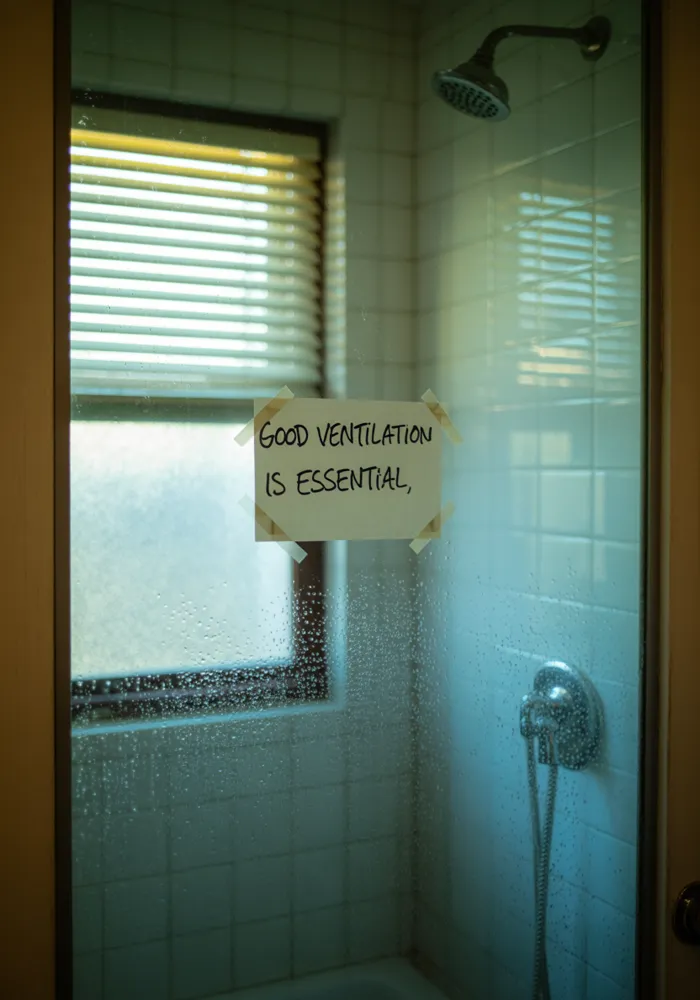 GOOD VENTILATION
IS ESSENTIAL,